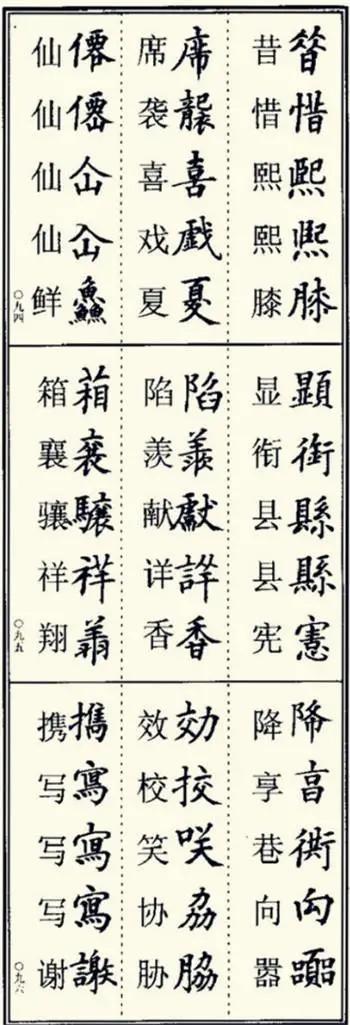 惜熈熙膝
昔惜熙熙膝
席襲喜戯夏
席袭喜戏夏
僊僊仚仚鱻
仙仙仙仙鲜
〇九四
顯衘縣縣憲
显衔县县宪
陷羨獻詳香
陷羡献详香
葙驤祥
箱襄骧祥翔
〇九五
降向
降享巷向嚣
効挍咲劦脇
效校笑协胁
寫寫寫謝
携写写写谢
〇九六